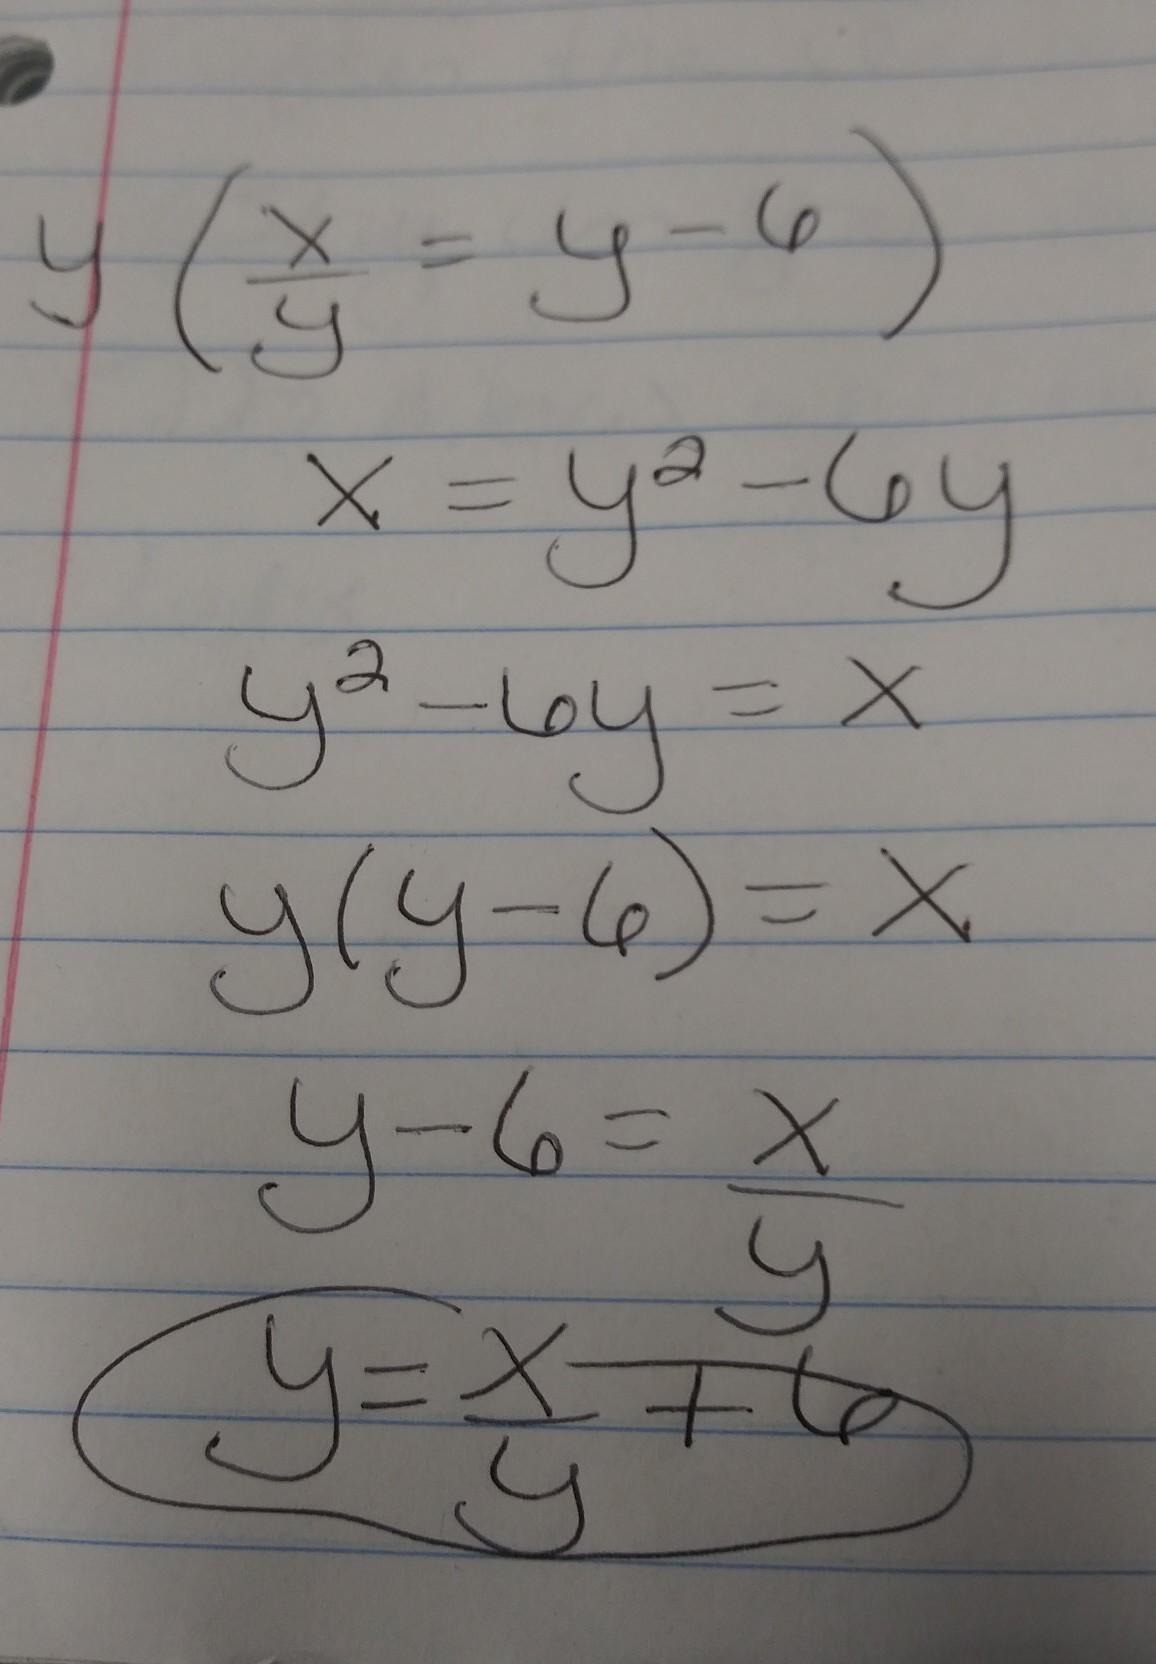 y(x/y = y - 6)
x = y² - 6y
y² - 6y = x
y(y - 6) = x
y - 6 = x/y
y = x/y + 6